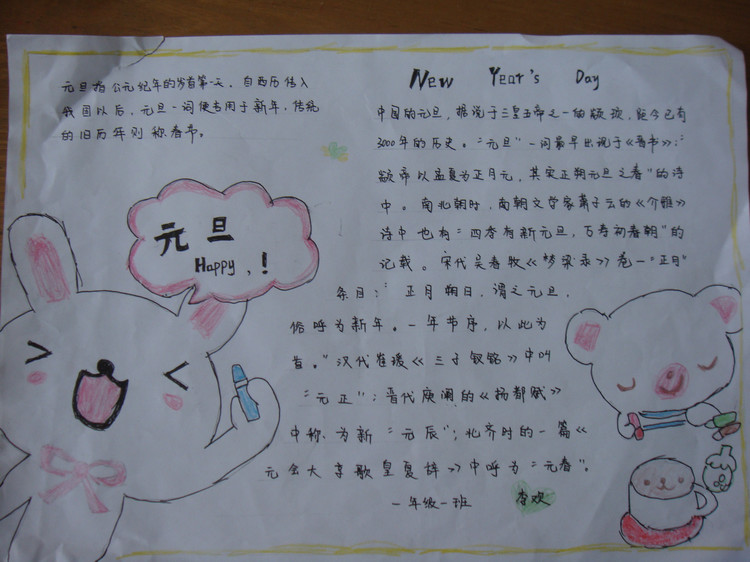 元旦指公元纪年的岁首第一天。自西历传入
我国以后,元旦一词便专用于新年,传统
的旧历年则称春节。
元旦
Happy,!
New Year's Day
中国的元旦,据说于三皇五帝之一的颛顼,距今已有
3000年的历史。"元旦"一词最早出现于《晋书》:"
颛帝以孟夏为正月元,其实正朔元旦之春"的诗
中。南北朝时,南朝文学家萧子云的《介雅》
诗中也有"四季有新元旦,万寿初春朝"的
记载。宋代吴春牧《梦梁录》卷一"正月"
条目:"正月朔日,谓之元旦,
俗呼为新年。一年节序,以此为
首。"汉代崔瑗《三子钗铭》中叫
"元正";晋代庾阐的《扬都赋》
中称为新"元辰";北齐时的一篇《
元会大享歌皇夏辞》中呼为"元春"。
一年级一班 李欢